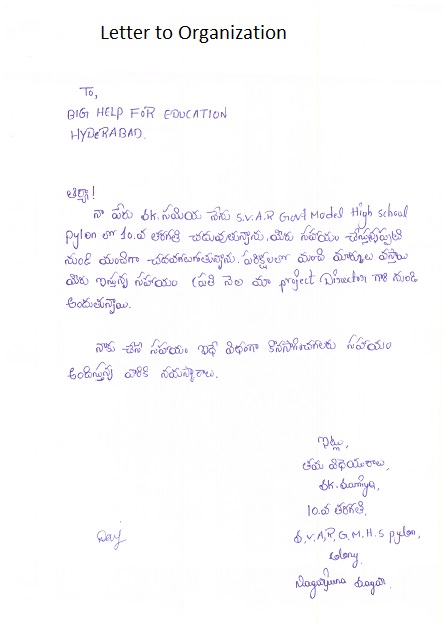 Letter to Organization
To,
BIG HELP FOR EDUCATION
HYDERABAD.
అయ్యా!
నా పేరు SK. సమియ నేను S.V.A.R Govt Model High school
pylon లో 10.వ తరగతి చదువుతున్నాను. మీరు సహాయం చేస్తున్నప్పటి
నుండి మంచిగా చదవగలుగుతున్నాను. పరీక్షలలో మంచి మార్కులు వస్తాయి
మీరు ఇస్తున్న సహాయం ప్రతి నెల మా project Director గారి నుండి
అందుతున్నాయి.
నాకు చేసే సహాయం ఇదే విధంగా కొనసాగించగలరు సహాయం
అందిస్తున్న వారికి నమస్కారాలు.
ఇట్లు,
తమ విధేయురాలు,
SK. Samiya,
10.వ తరగతి,
S.V.A.R.G.M.H.S pylon,
colony.
Nagarjuna Sagar.